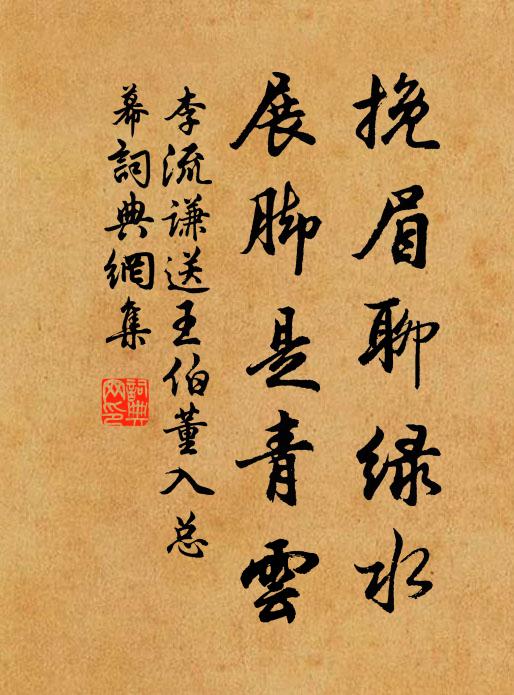 挽眉聊绿水
展脚是青雲
李流谦送王伯董入总
幕詞典網集
詞典网印